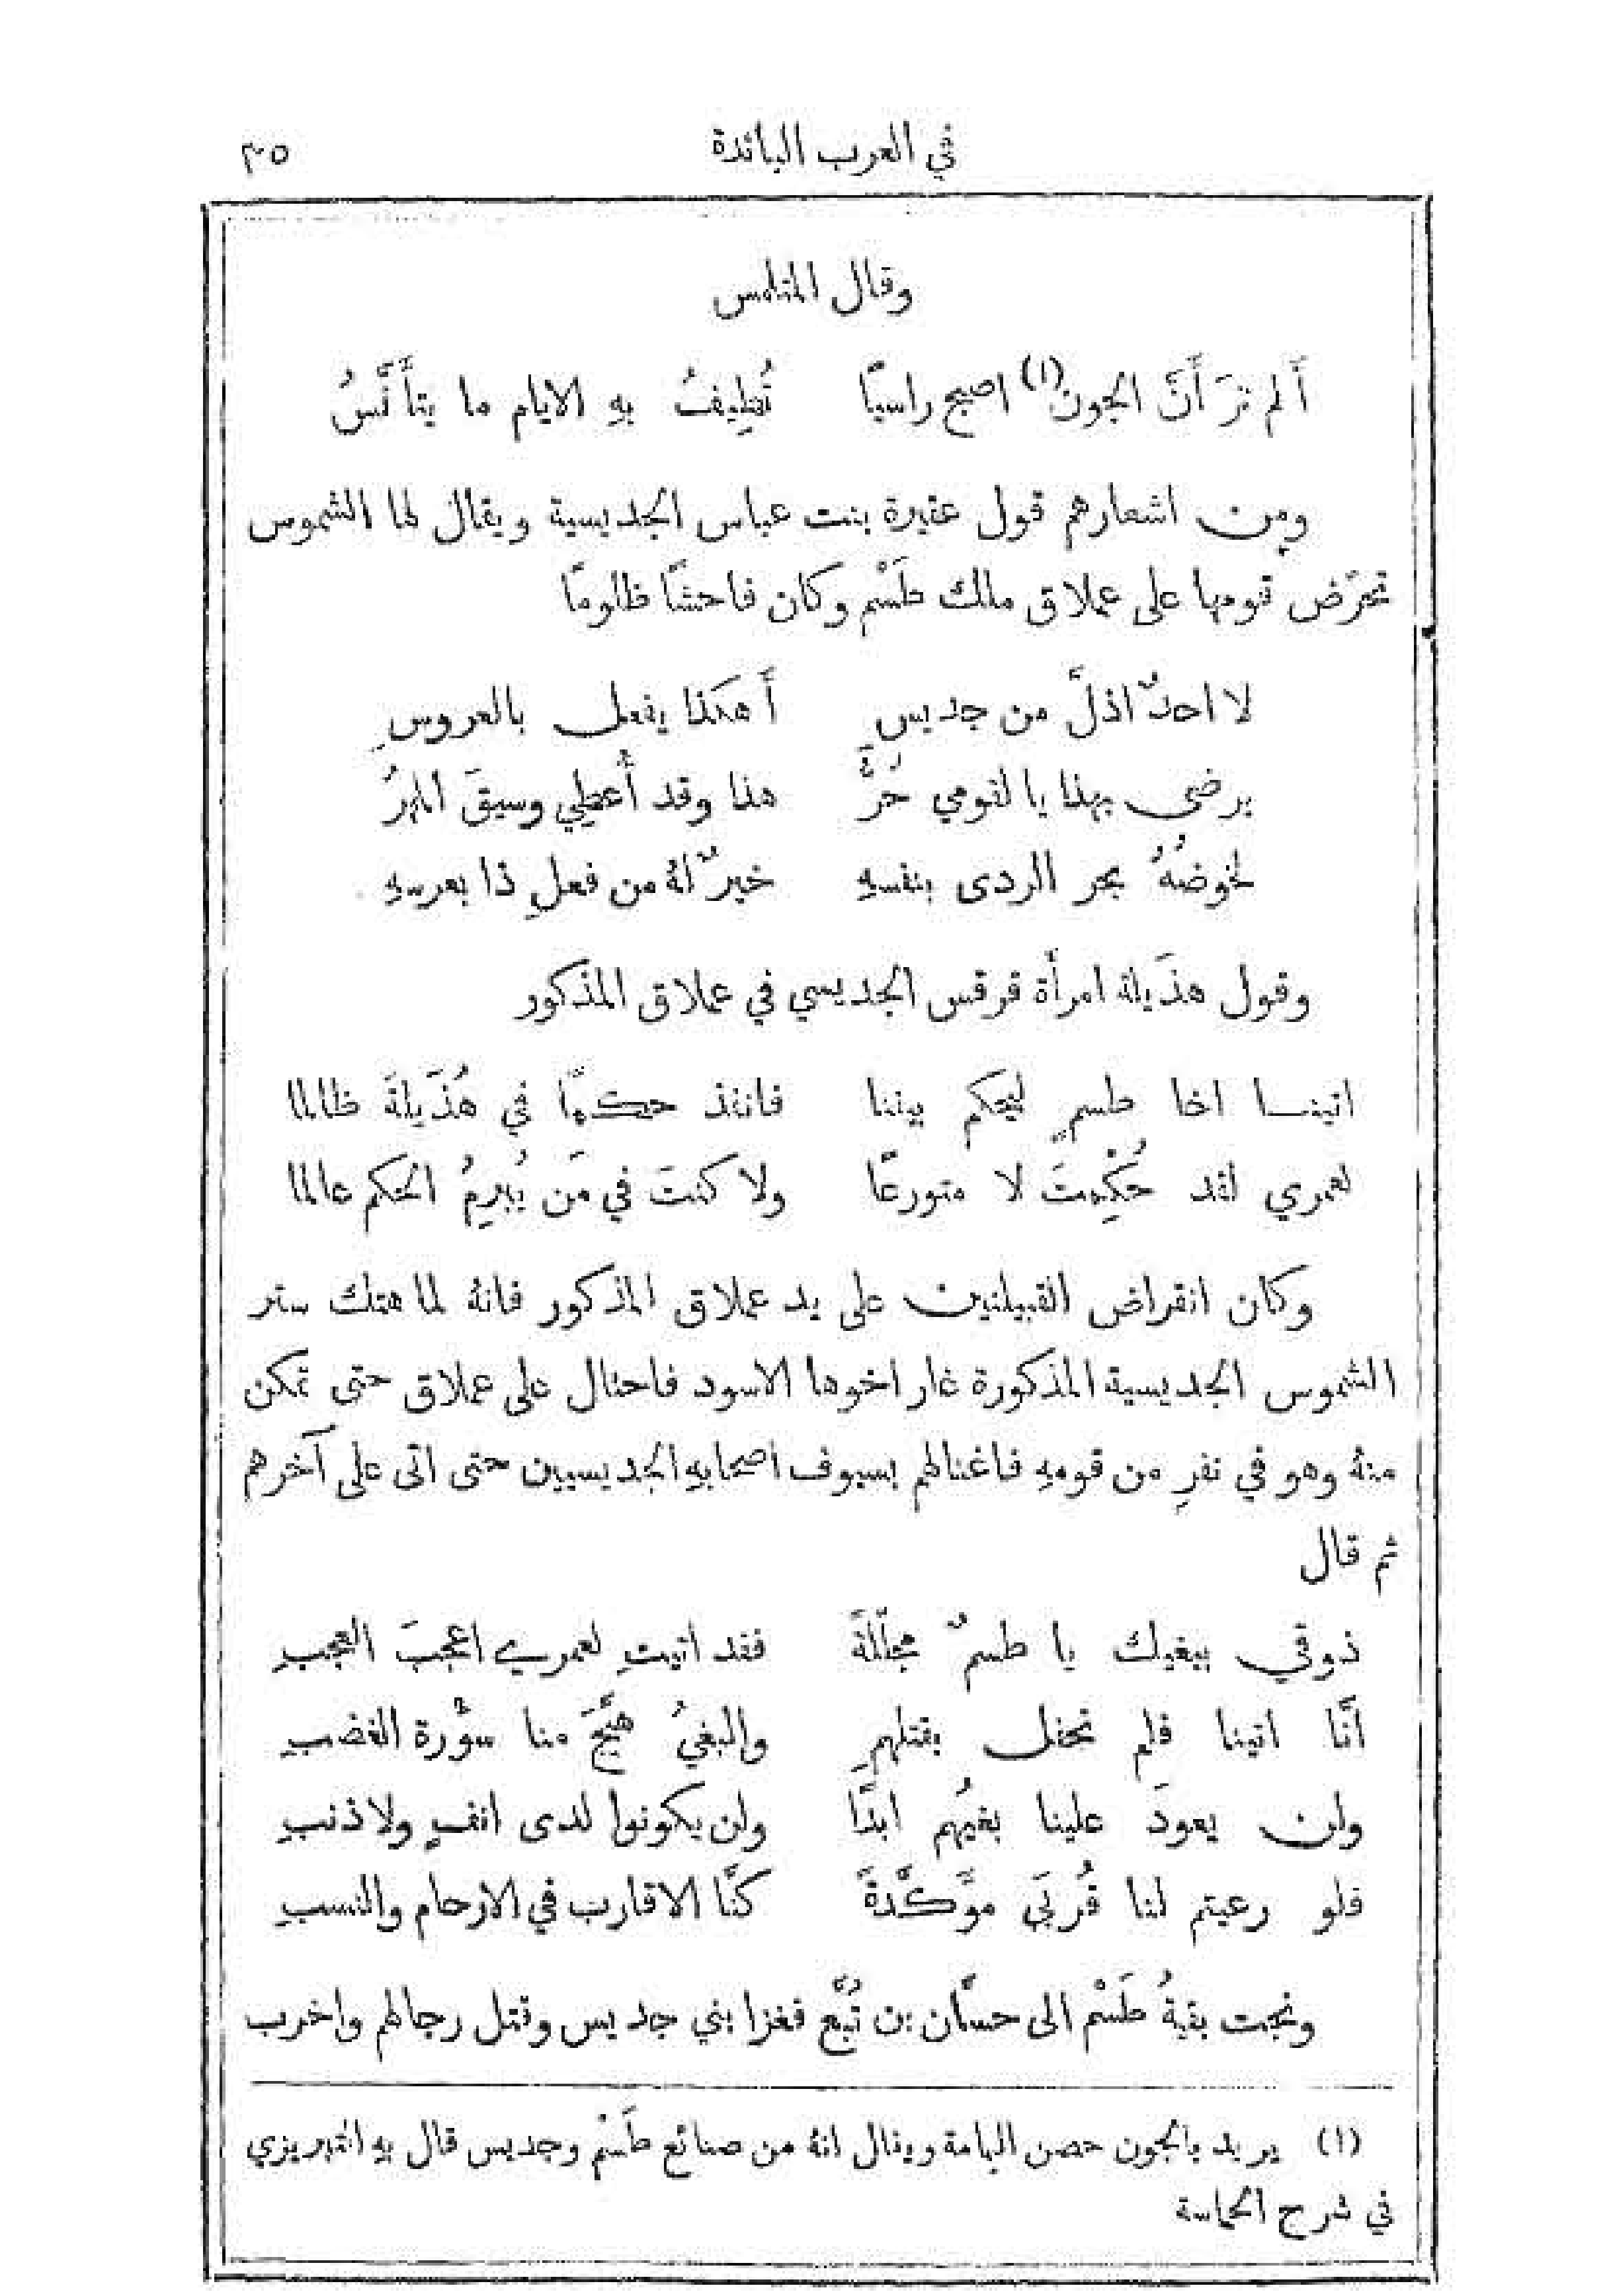 في العرب البائدة ٣٥
وقال المتلمس
أَلم ترَ أَنَّ الجونَ (١) اصبح راسيًا تُطِيفُ بهِ الايام ما يتأَنَّسُ
ومن اشعارهم قول عفيرة بنت عباس الجديسية ويقال لها الشموس
تحرّض قومها على عملاق ملك طَسْم وكان فاحشًا ظلومًا
لا احدٌ اذلَّ من جديس أَهكذا يفعل بالعروسِ
يرضى بهذا يا لقومي حُرُّ هذا وقد أُعطِي وسيقَ المهرُ
لخوضهُ بحر الردى بنفسهِ خيرٌ لهُ من فعلِ ذا بعرسهِ
وقول هذَيلة امرأة قرقس الجديسي في عملاق المذكور
اتينا اخا طسمٍ ليحكم بيننا فانفذ حكمًا في هُذَيلةَ ظالما
لعمري لقد حُكِّمتَ لا متورعًا ولا كنتَ في مَن يُبرِمُ الحكم عالما
وكان انقراض القبيلتين على يد عملاق المذكور فانهُ لما هتك ستر
الشموس الجديسية المذكورة غار اخوها الاسود فاحتال على عملاق حتى تمكن
منهُ وهو في نفرٍ من قومهِ فاغتالهم بسيوف اصحابهِ الجديسيين حتى اتى على آخرهم
ثم قال
ذوقي ببغيك يا طسمٌ مجلّلةً فقد اتيتِ لعمري اعجبَ العجبِ
أَنَّا اتينا فلم نحفل بقتلهمِ والبغيُ هيَّجَ منا سَوْرة الغضبِ
ولن يعودَ علينا بغيُهم ابدًا ولن يكونوا لدى انفٍ ولا ذنبِ
فلو رعيتم لنا قُربَى موَّكَّدةً كنَّا الاقارب في الارحام والنسبِ
ونجت بقيةُ طَسْم الى حسَّان بن تُبَّع فغزا بني جديس وقتل رجالهم واخرب
(١) يريد بالجون حصن اليمامة ويقال انهُ من صنائع طَسْم وجديس قال بهِ التبريزي
في شرح الحماسة